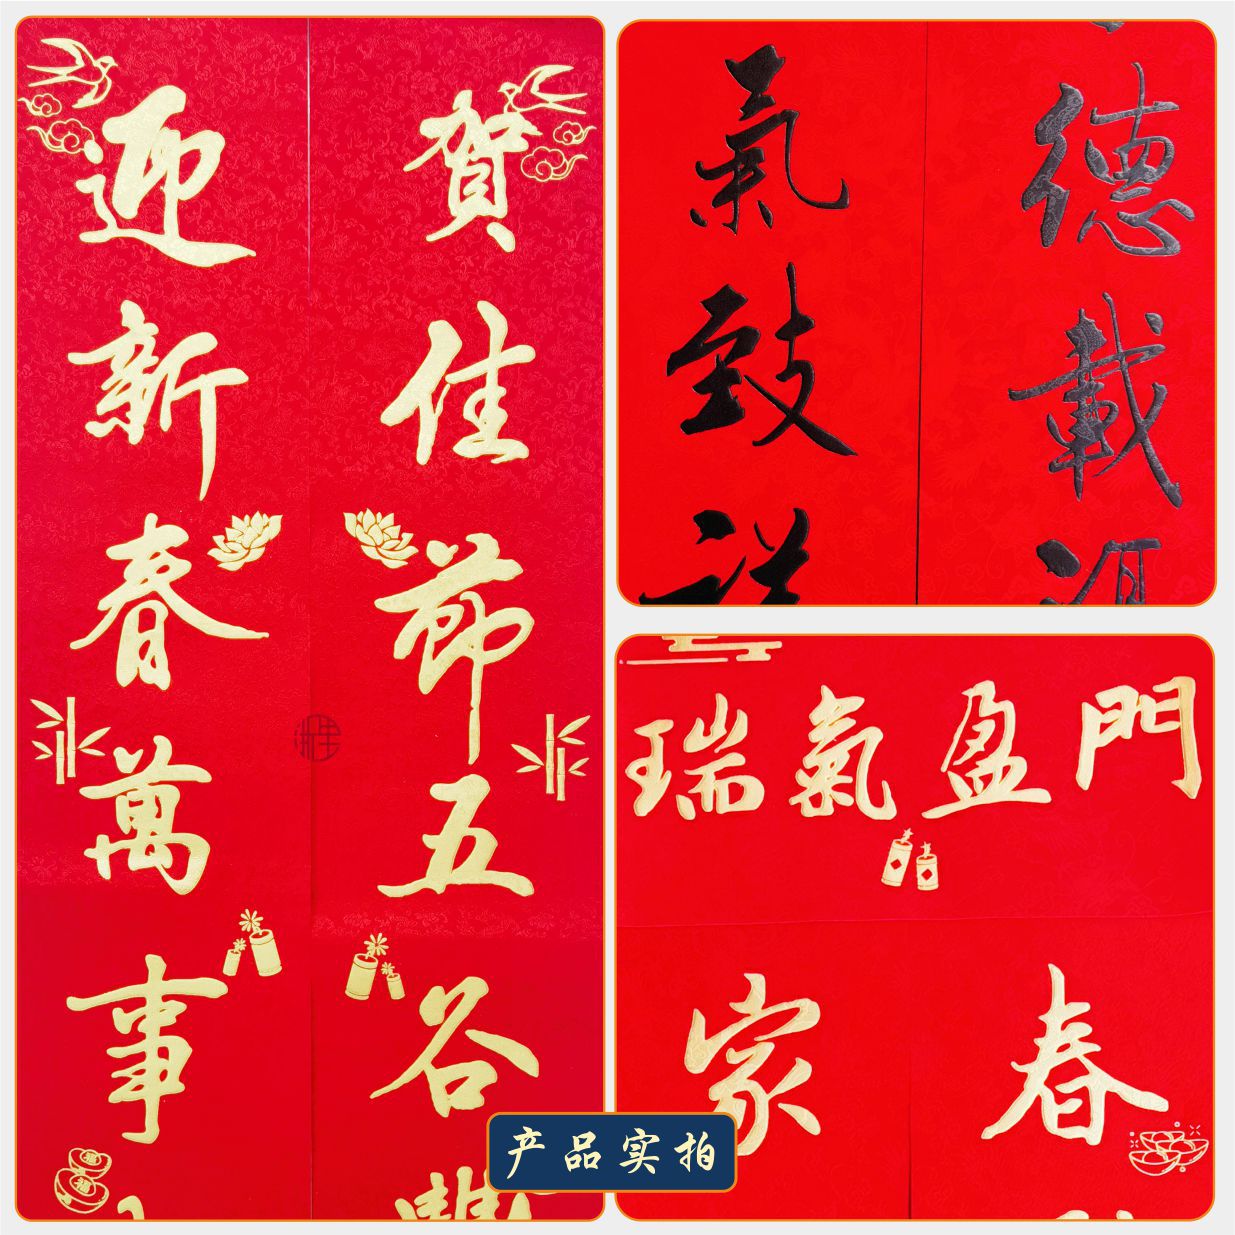 賀佳節五谷
迎新春萬事
德載
氣致祥
瑞氣盈門
春
家
福
福
产品实拍